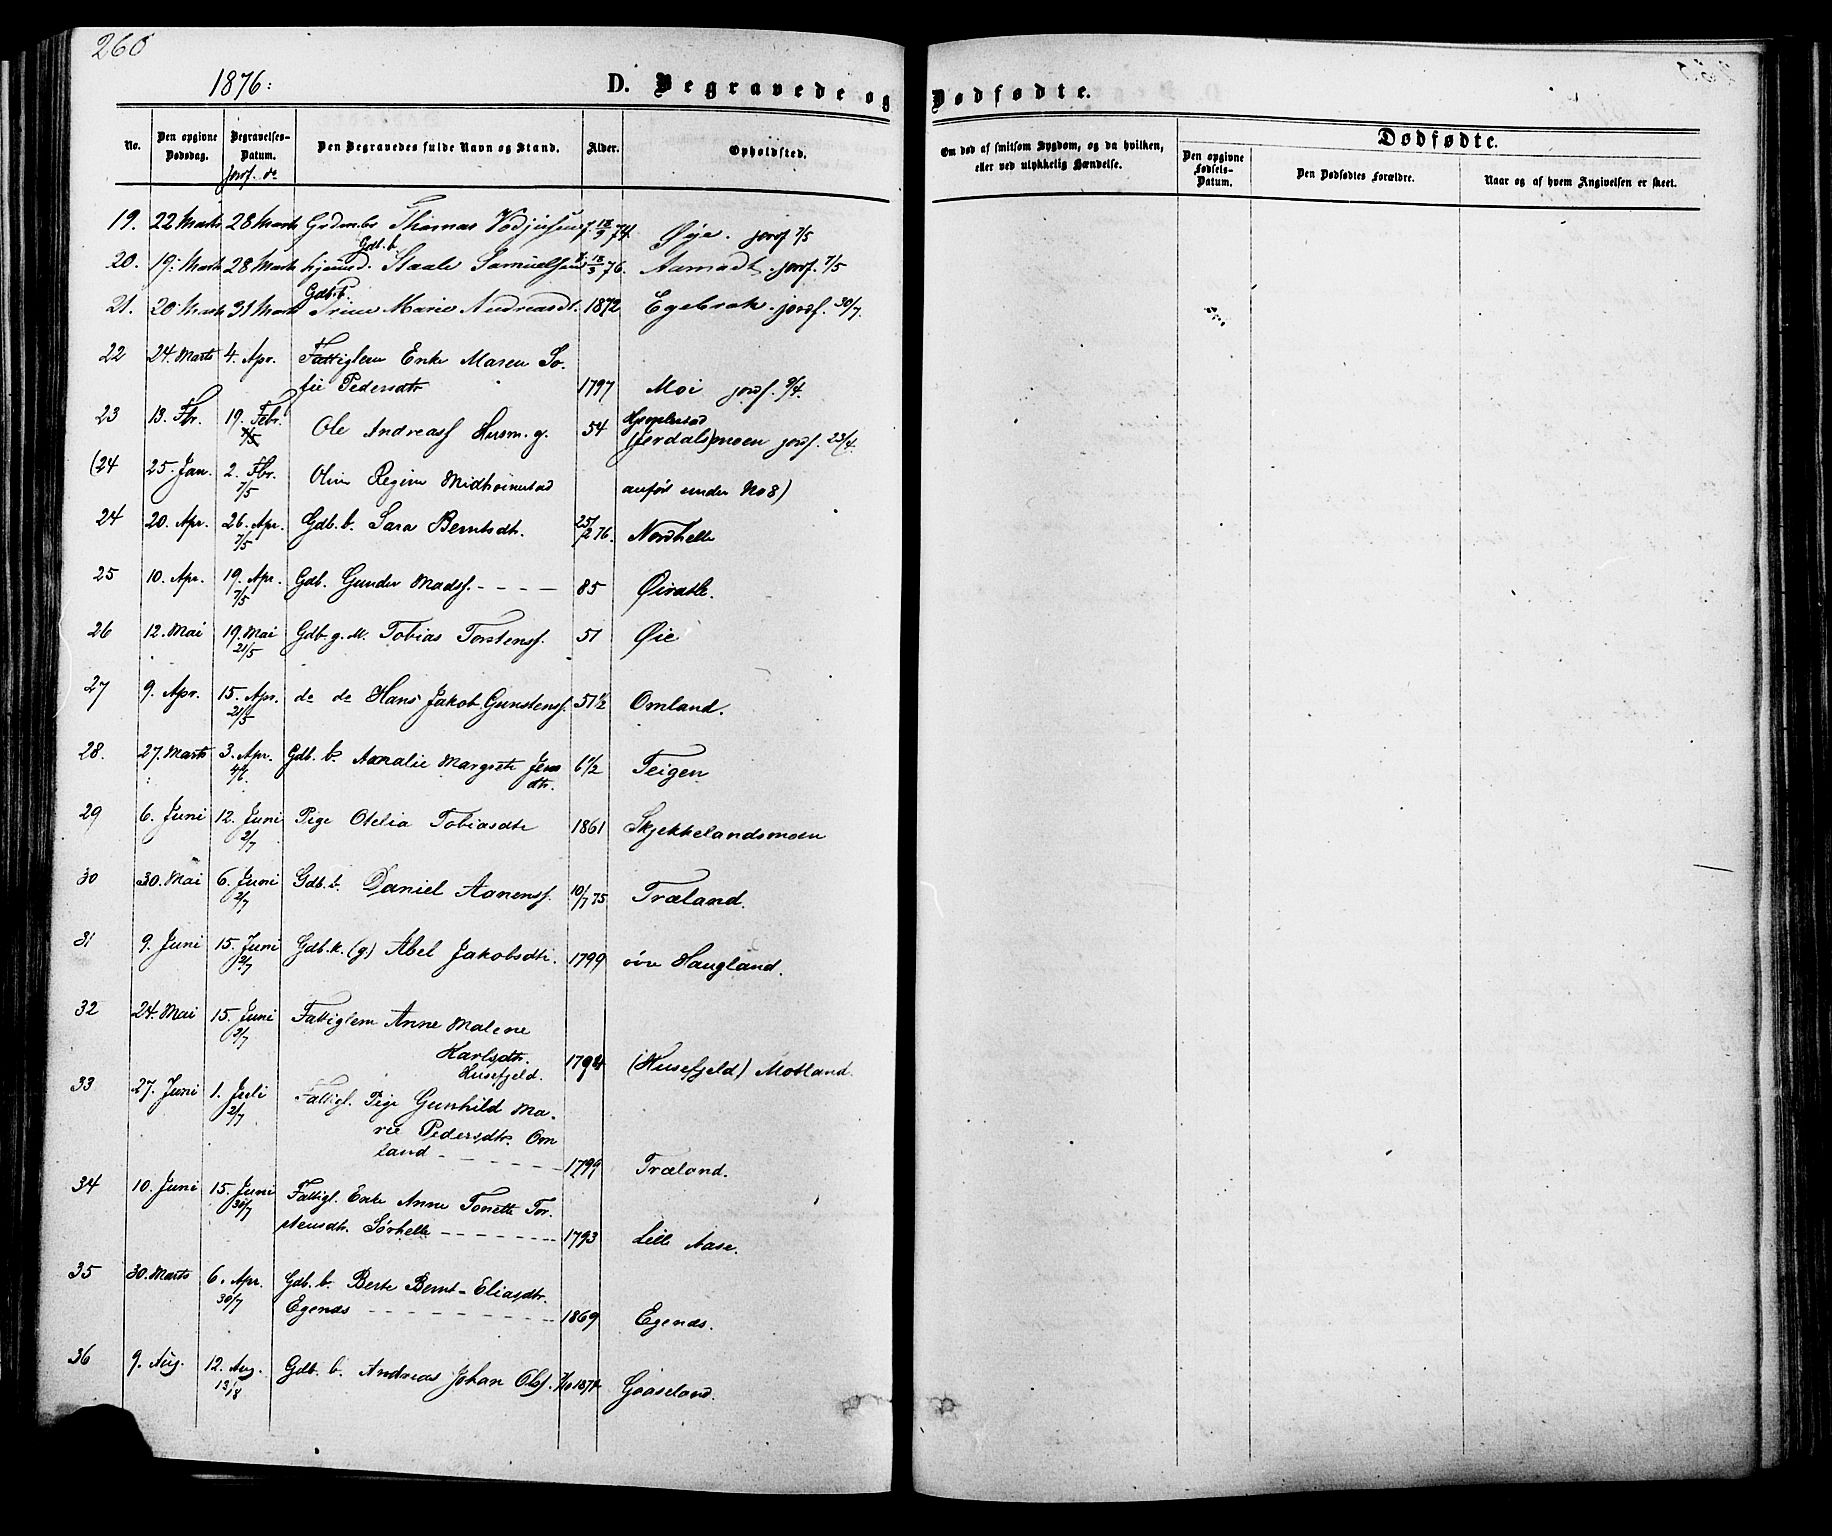 260
1876:
D. Begravede og Dødfødte.
No.
Den opgivne Dødsdag.
Begravelses-Datum.
jordf. do
Den Begravedes fulde Navn og Stand.
Alder.
Opholdsted.
Om død af smitsom Sygdom, og da hvilken,
eller ved ulykkelig Hændelse.
Dødfødte.
Den opgivne Fødsels-Datum.
Den Dødfødtes Forældre.
Naar og af hvem Angivelsen er skeet.
19. 22 Marts 28 Marts Thomas f. 74. Øie. jordf 7/5
Gdb. b.
20. 19. Marts 28 Marts Staale Samuelsen 76. jordf. 7/5
Gdb. b.
21. 20 Marts 31 Marts Trine Marie Andreasdt. 1872 Egebrok. jordf. 30/7.
22 24. Marts 4. Apr. Fattiglem Enke Maren So-
fie Pedersdtr 1797 Moi jordf. 9/4.
23 13. Fbr. 19. Febr. Ole Andreasf Husm. g. 54
moen jordf. 23/4.
(24 25. Jan. 2. Fbr. 7/5 Oline Regine Midthvinestad anført under No 8)
24 20. Apr. 26. Apr. 7/5 Gdb. b. Sara Berntsdt. 25/2 76. Nordhelle
25 10. Apr. 19. Apr. 7/5 Gdb. Gunder Madsf. - - - - 85
26 12. Mai 19. Mai 21/5 Gdb. g. M. Tobias Torstensf. 51 Øie
27 9. Apr. 15. Apr. 21/5 do do Hans Jakob Gunstensf. 51 1/2 Omland.
28. 27. Marts 3. Apr. Gdb. b. Aanalie Margrete Jens
dtr. 6 1/2 Teigen
29 6. Juni 12. Juni 2/7 Pige Otelia Tobiasdtr 1861 Skjekkelandsmoen
30 30. Mai 6. Juni 2/7 Gdb. b. Daniel Aanensf. 10/7 75 Træland.
31 9. Juni 15. Juni 2/7 Gdb. k. (g) Abel Jakobsdtr. 1799 øvre Haugland.
32 24. Mai 15. Juni 2/7 Fattiglem Anne Malene
Karlsdtr.
Husefjeld. 1794 (Husefjeld) Motland.
33 27. Juni 1. Juli 2/7 Fattigl. Pige Gunhild Ma-
rie Pedersdtr. Om
land - - - - - - 1799 Træland.
34 10. Juni 15. Juni 30/7 Fattigl. Enke Anne Tonette Tor-
stensdtr. Sørhelle - - - - - - 1793 Lille Aase.
35 30. Marts 6. Apr. 30/7 Gdb. b. Berte Bernt-Eliasdtr.
Egenes - - - - - - - 1869 Egenes.
36 9. Aug. 12. Aug. 13/8 Gdb. b. Andreas Johan Olsf. Gaaseland.